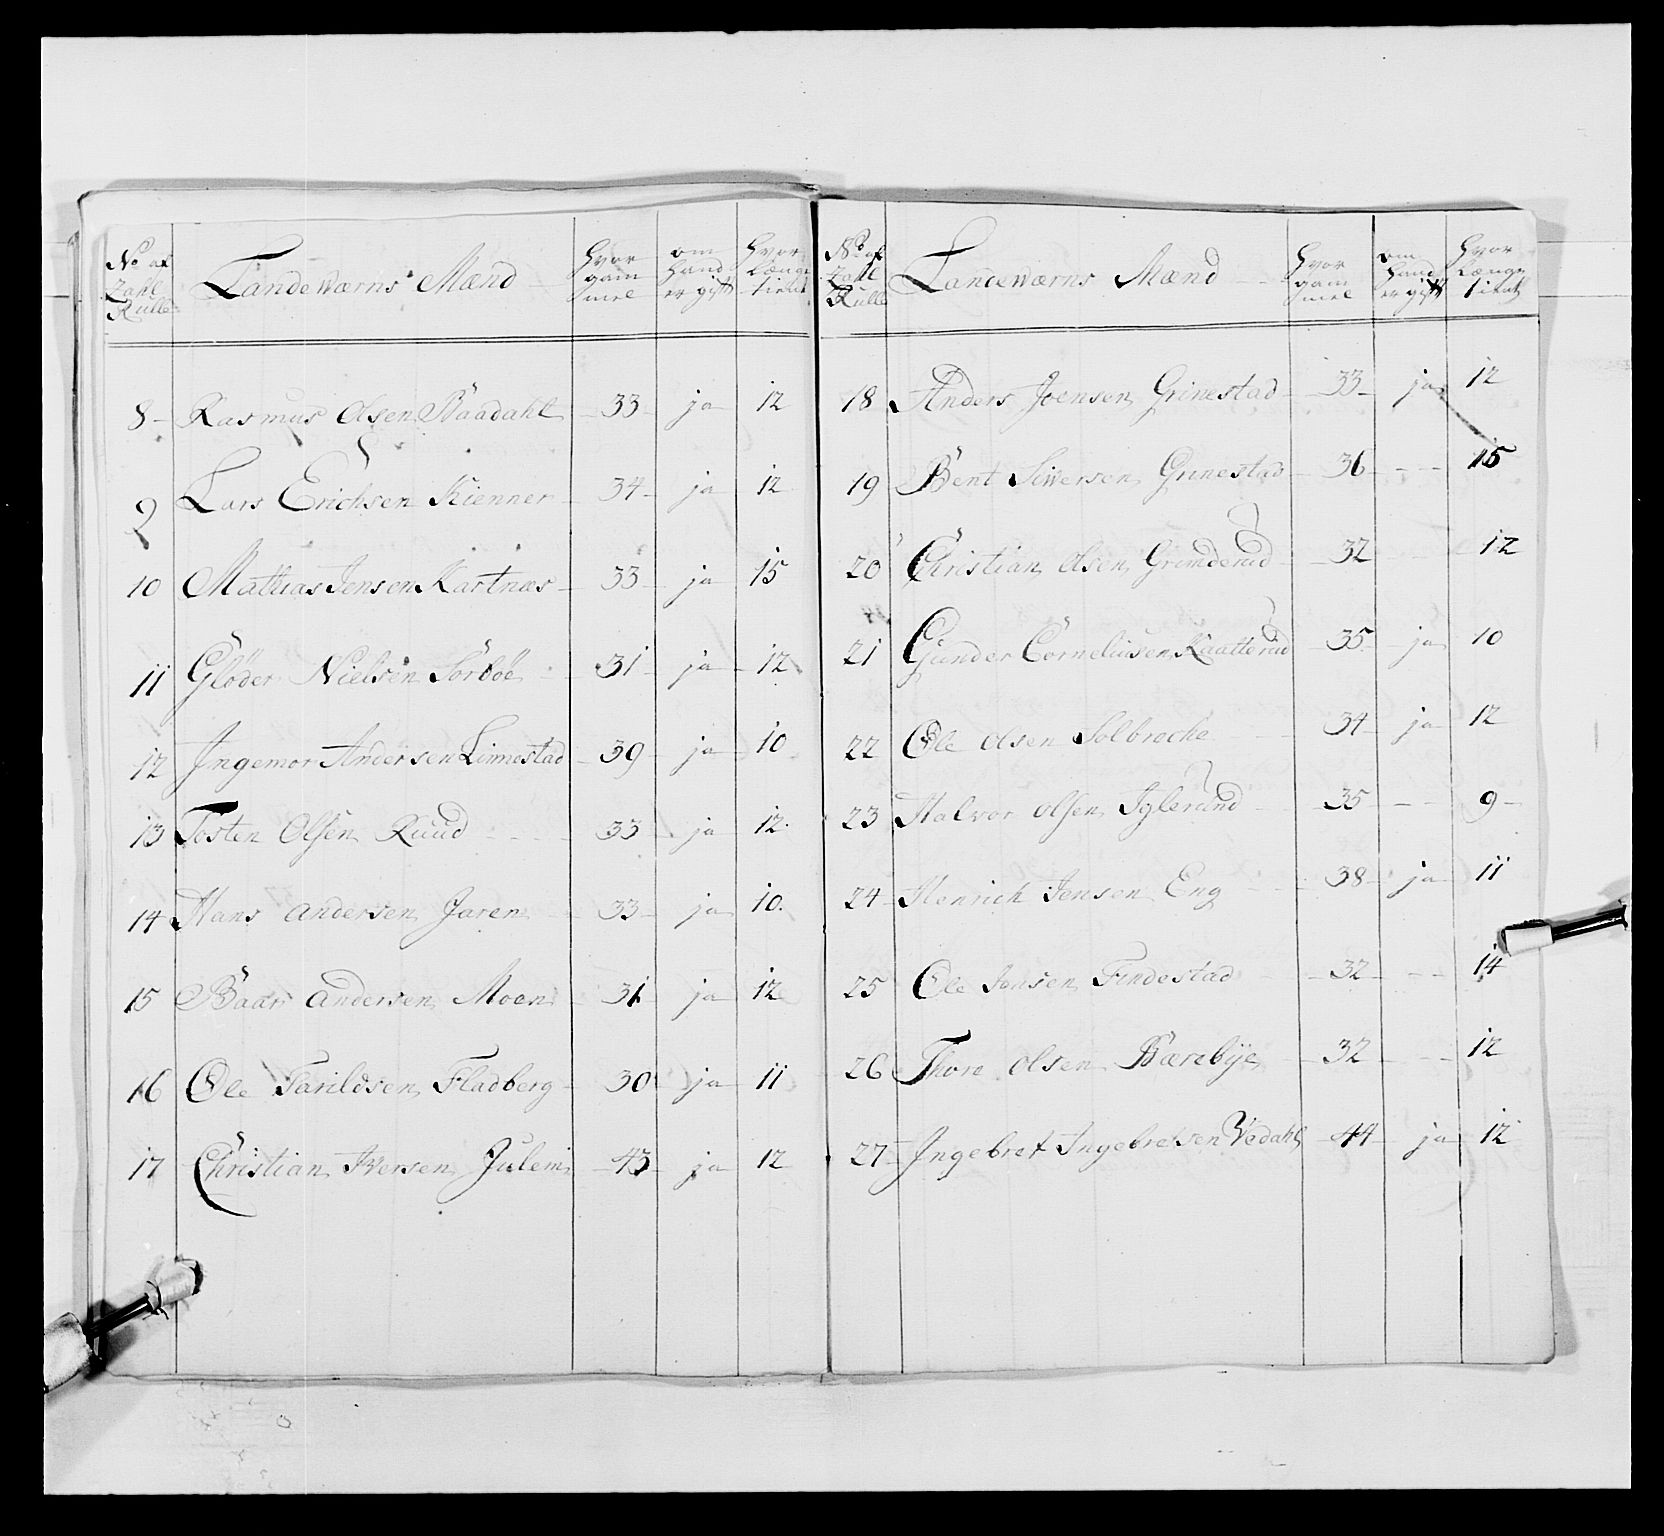 No af Zahl Rulle Landewærns Mænd Hvor gammel om hand er gift Hvor længe tient
8 Rasmus Olsen Baadahl 33 ja 12
9 Lars Erichsen Kienner 34 ja 12
10 Mathias Jensen Kastnæs 33 ja 15
11 Gløder Nielsen Sörböe 31 ja 12
12 Ingemor Andersen Linnestad 39 ja 10
13 Tosten Olsen Ruud 33 ja 12
14 Hans Andersen Jaren 33 ja 10
15 Baar Andersen Moen 31 ja 12
16 Ole Tarildsen Fladberg 30 ja 11
17 Christian Iversen Julem 43 ja 12
No af Zahl Rulle Landewærns Mænd Hvor gammel om hand er gift Hvor længe tient
18 Anders Joensen Grinestad 33 ja 12
19 Bent Siwersen Grinestad 36 - - 15
20 Christian Olsen Grimderud 32 - - 12
21 Gunder Corneliusen Kaatterud 35 ja 10
22 Ole Olsen Solbreche 34 ja 12
23 Halvor Olsen Iglerund 35 - - 9
24 Henrich Jensen Eng 38 ja 11
25 Ole Jonsen Findestad 32 - - 14
26 Thore Olsen Bærebye 32 - - 12
27 Ingebret Ingebretsen Vedahl 44 ja 12